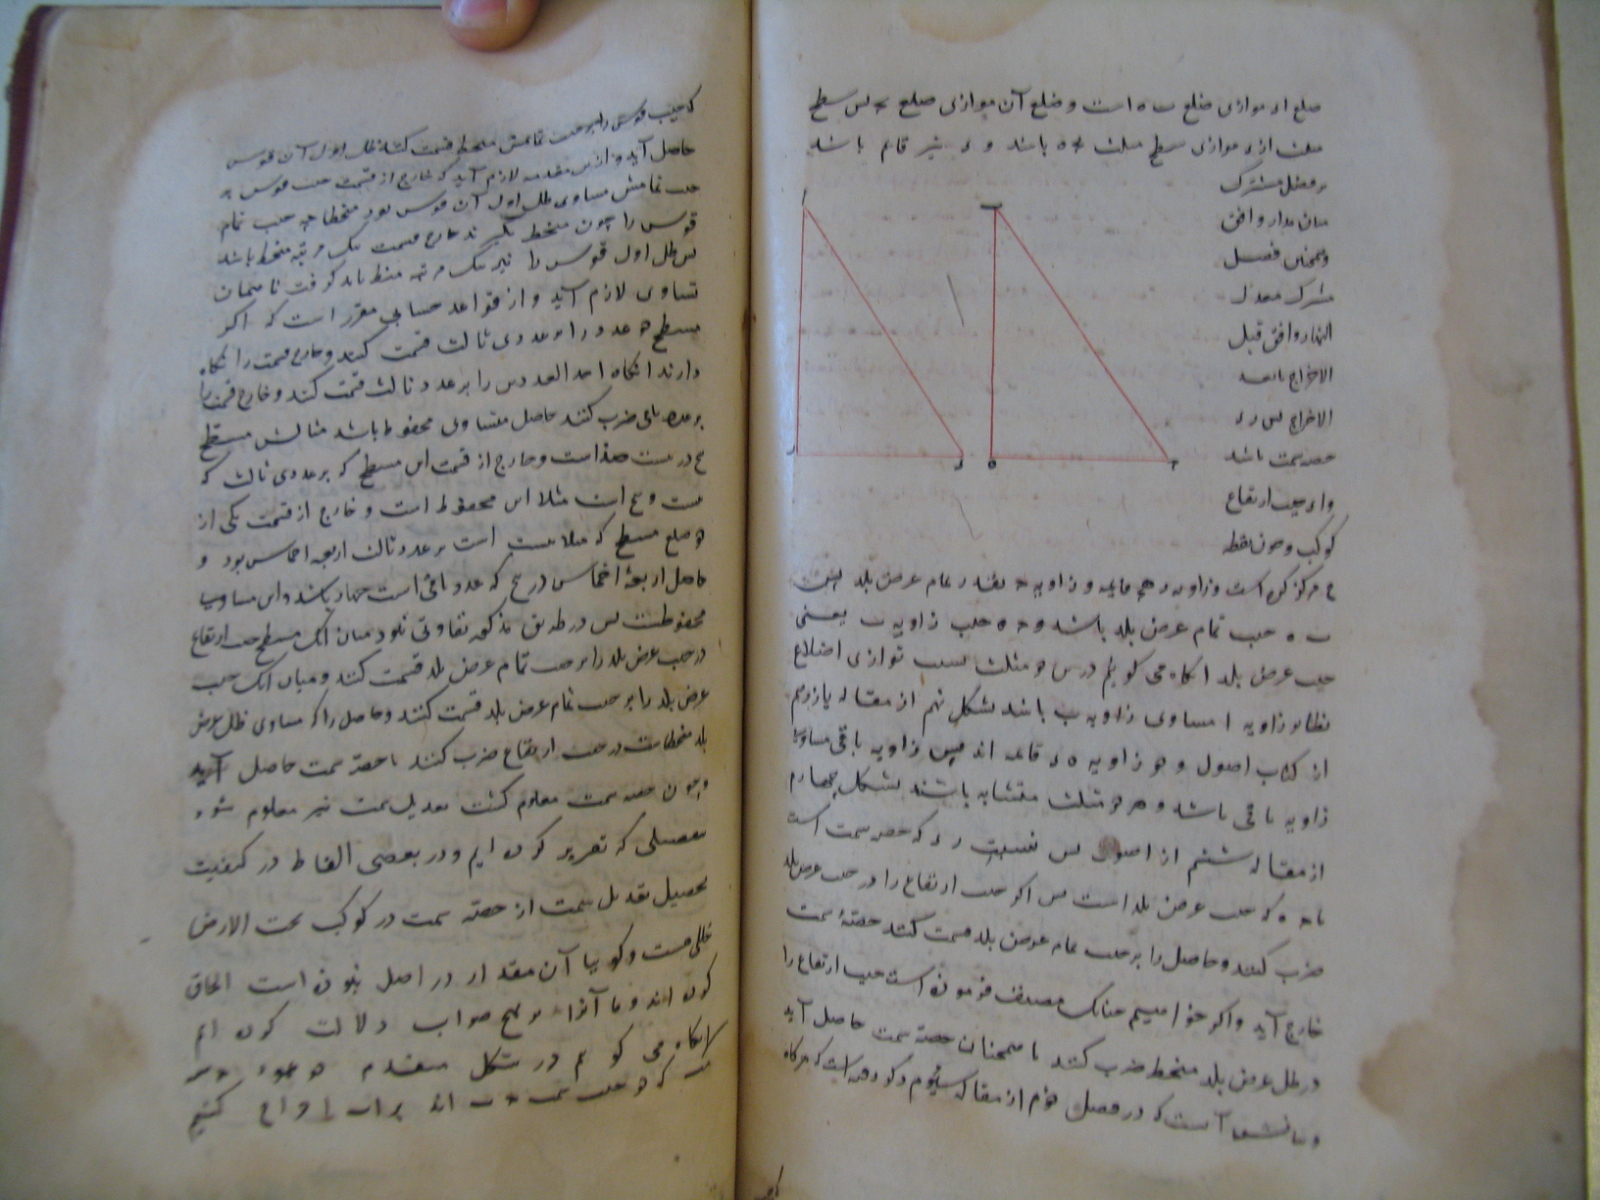 ضلع ا ء موازی ضلع ب ه است و ضلع آن موازی ضلع پس سطح
مثلث ا ز ء موازی سطح مثلث باشد و نیز قائم باشد
بر فصل مشترک
میان مدار و افق
و همچنین فصل
مشترک معدل
النهار و افق قبل
الاخراج بالبعد
الاخراج پس ر ء
حصه سمت باشد
و ا ء جیب ارتفاع
کوکب و چون نقطه
ح مرکز کره است و زاویه ه قایمه و زاویه ح بقدر تمام عرض بلد پس
ب ه جیب تمام عرض بلد باشد و ح ه جیب زاویه ب یعنی
جیب عرض بلد آنگاه می گویم درین دو مثلث بسبب توازی اضلاع
نظایر زاویه ا مساوی زاویه ب باشد بشکل نهم از مقاله یازدهم
از کتاب اصول و دو زاویه ه ء قائمه اند پس زاویه باقی مساوی
زاویه باقی باشد و هر دو مثلث متشابه باشند بشکل چهارم
از مقاله ششم از اصول پس نسبت ر ء که حصه سمت است
با ح ه که جیب عرض بلد است پس اگر جیب ارتفاع را در جیب عرض بلد
ضرب کنند و حاصل را بر جیب تمام عرض بلد قسمت کنند حصهٔ سمت
خارج آید و اگر خواهیم چنانکه مصنف فرموده است جیب ارتفاع را
در ظل عرض بلد منحط ضرب کنند تا همچنان حصه سمت حاصل آید
و بیانش آنست که در فصل دوم از مقاله سیوم ذکر کرده است که هرگاه
که جیب قوس را بر جیب تمامش منحط قسمت کنند ظل اول آن قوس
حاصل آید و ازین مقدمه لازم آید که خارج از قسمت جیب قوس بر
جیب تمامش مساوی ظل اول آن قوس بود منحطا چه جیب تمام
قوس را چون منحط بگیرند خارج قسمت یک مرتبه منحط باشد
پس ظل اول قوس را نیز یک مرتبه منحط باید گرفت تا همچنان
تساوی لازم آید و از قواعد حسابی مقرر است که اگر
مسطح دو عدد را بر عددی ثالث قسمت کنند و خارج قسمت را نگاه
دارند آنگاه احد العددین را بر عدد ثالث قسمت کنند و خارج قسمت را
بر عدد باقی ضرب کنند حاصل مساوی محفوظ باشد مثالش مسطح
در بیست است و خارج از قسمت این مسطح که بر عددی ثالث که
است مثلا این محفوظ است و خارج از قسمت یکی از
دو ضلع مسطح که مثلا بیست است بر عدد ثالث اربعه اخماس بود و
حاصل اربعهٔ اخماس در پنج که عدد باقی است چهار باشد و این مساوی
محفوظست پس در طریق مذکور تفاوتی نبود میان آنکه مسطح جیب ارتفاع
در جیب عرض بلد را بر جیب تمام عرض بلد قسمت کنند و میان آنکه جیب
عرض بلد را بر جیب تمام عرض بلد قسمت کنند و حاصل را که مساوی ظل عرض
بلد منحط است در جیب ارتفاع ضرب کنند تا حصه سمت حاصل آید
و چون حصه سمت معلوم گشت تعدیل سمت نیز معلوم شود
بتفصیلی که تقریر کرده ایم و در بعضی الفاظ در کیفیت
تحصیل تعدیل سمت از حصه سمت در کوکب تحت الارض
خللی هست و گویا آن مقدار در اصل نبوده است الحاق
کرده اند و ما آنرا بر نهج صواب دلالت کرده ایم
آنگاه می گویم در شکل متقدم
که دو جیب سمت اند برابر کنیم